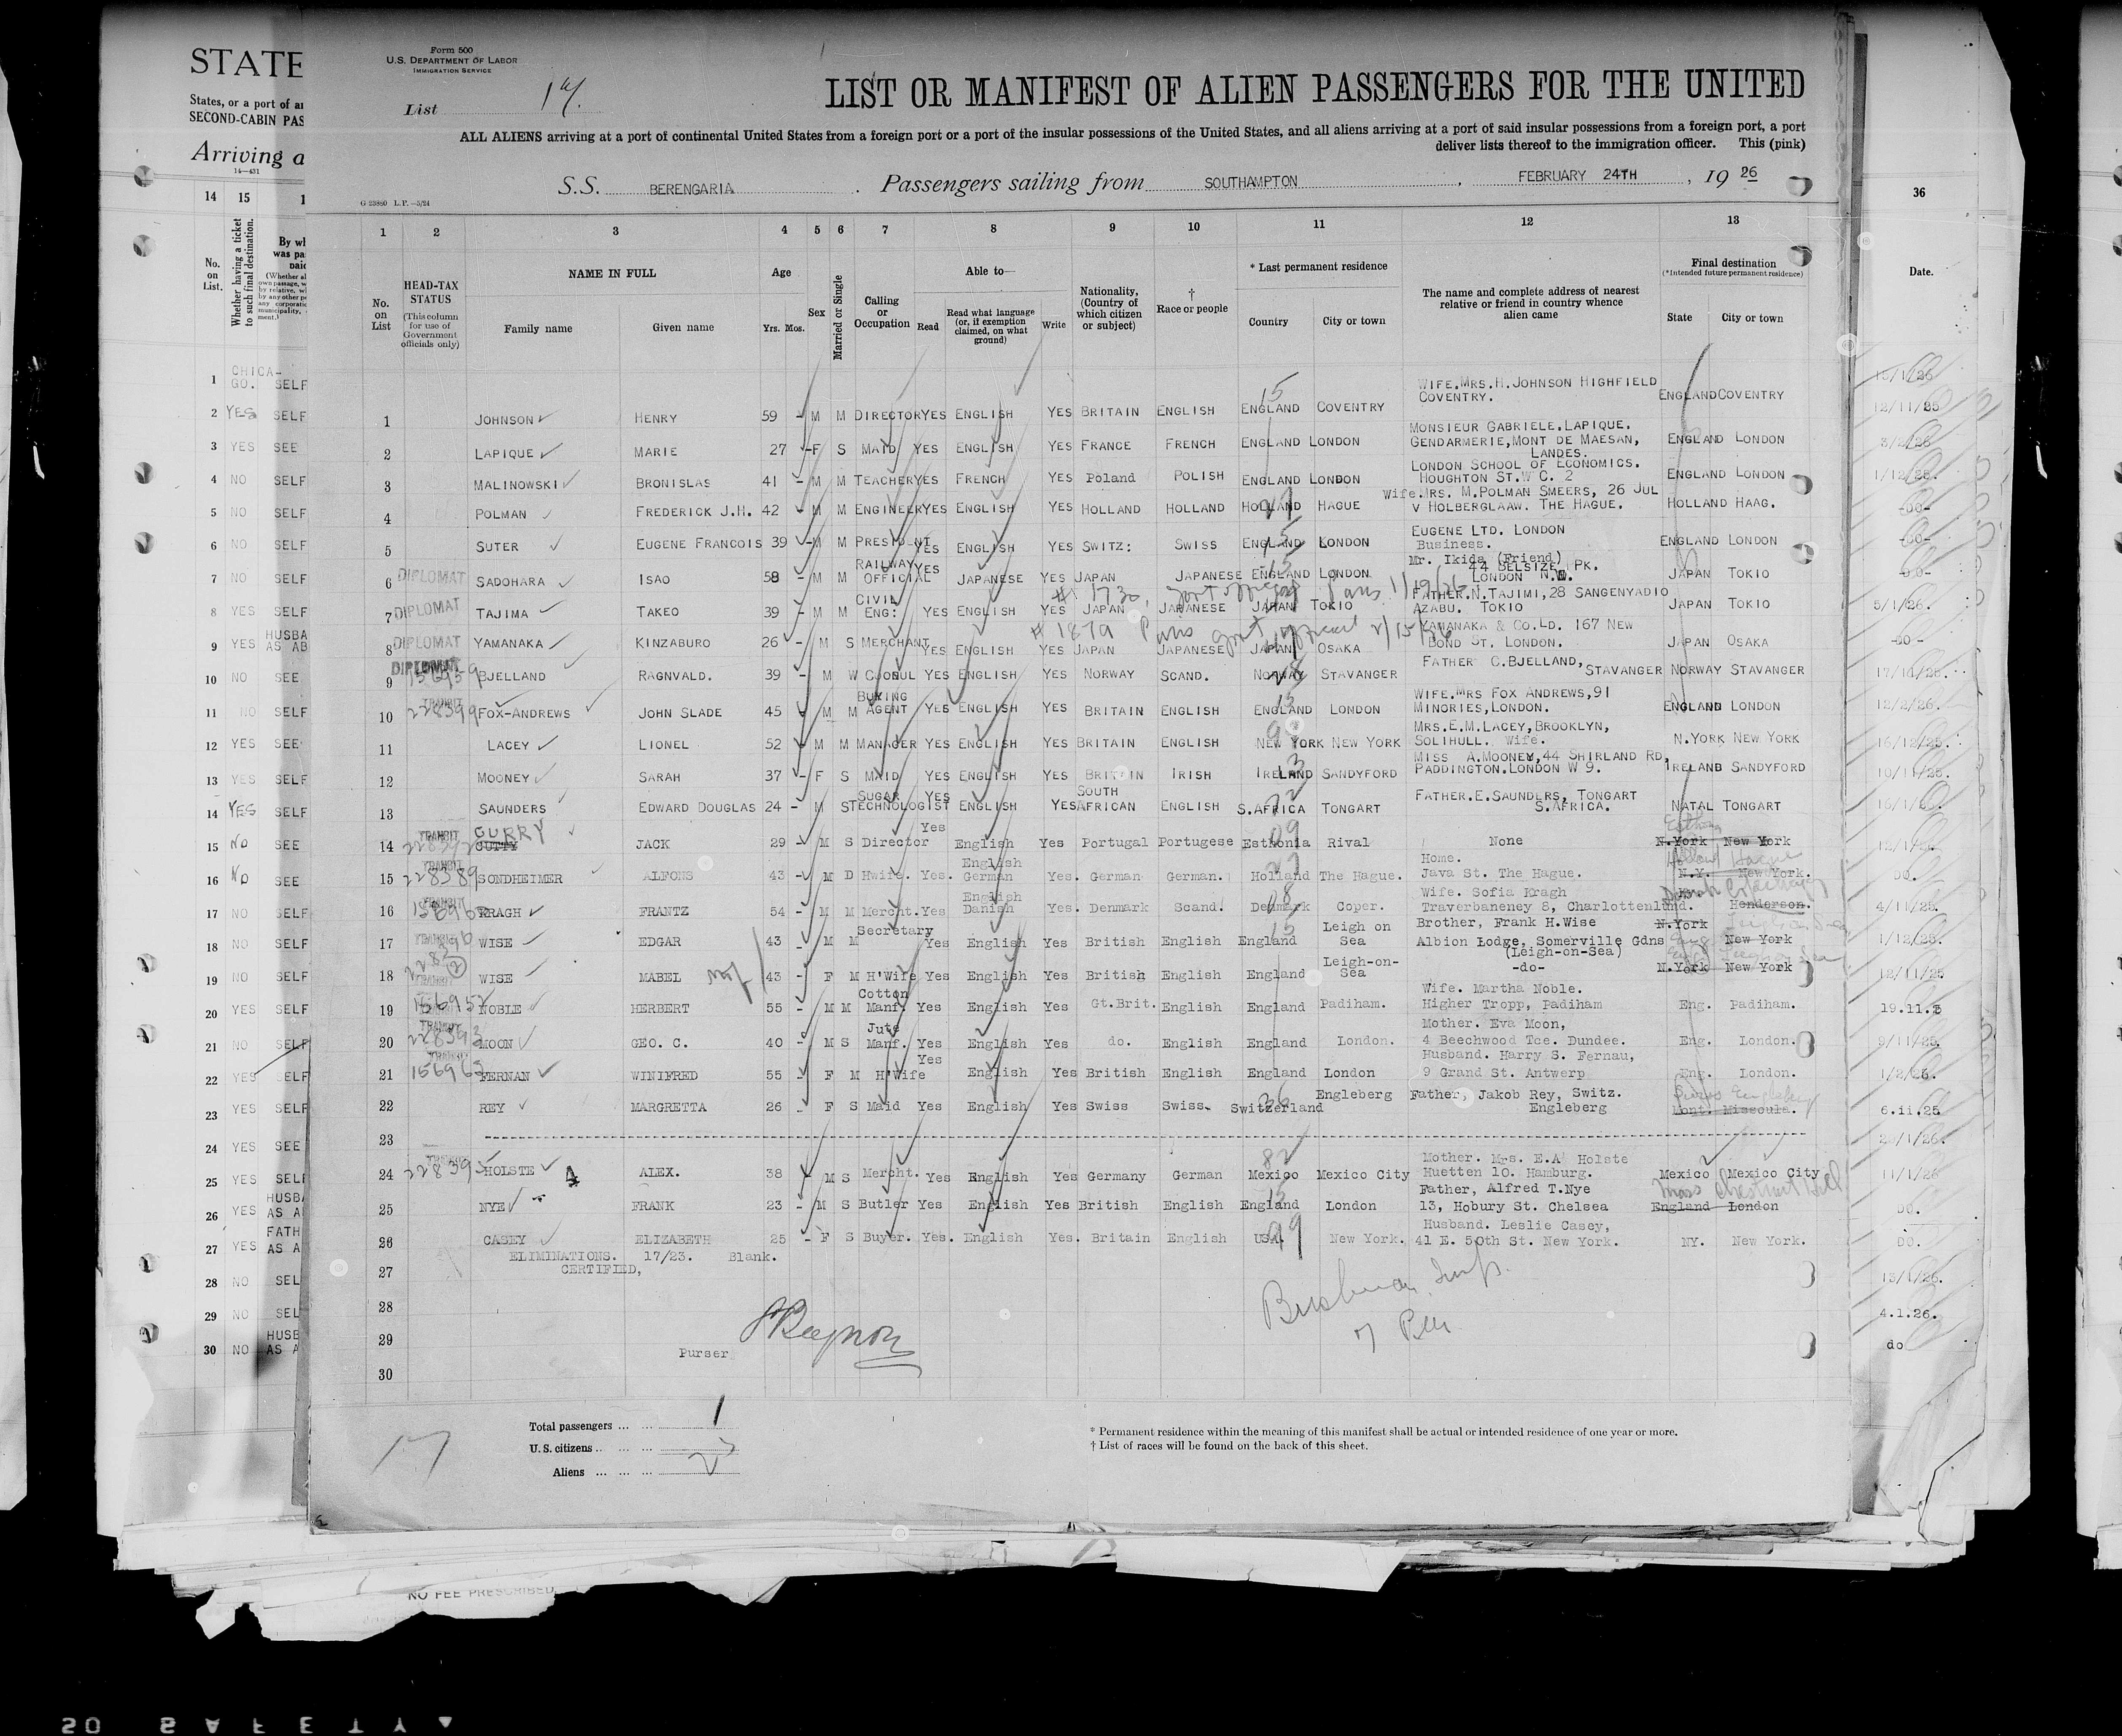 STATE
States, or a port of
SECOND-CABIN PAS
Arriving a
14—431
Form 500
U.S. DEPARTMENT OF LABOR
IMMIGRATION SERVICE
List 14.
LIST OR MANIFEST OF ALIEN PASSENGERS FOR THE UNITED
ALL ALIENS arriving at a port of continental United States from a foreign port or a port of the insular possessions of the United States, and all aliens arriving at a port of said insular possessions from a foreign port, a port
deliver lists thereof to the immigration officer. This (pink)
S.S. BERENGARIA. Passengers sailing from SOUTHAMPTON, FEBRUARY 24TH, 19 26
G 23860 L.P.—5/24
14 15
No. on List.
Whether having a ticket to such final destination.
1 2 3 4 5 6 7 8 9 10 11 12 13
36
Date.
No. on List
HEAD-TAX STATUS
(This column for use of Government officials only)
NAME IN FULL
Family name Given name
Age
Yrs. Mos.
Sex
Married or Single
Calling or Occupation
Able to—
Read
Read what language (or, if exemption claimed, on what ground)
Write
Nationality, (Country of which citizen or subject)
† Race or people
* Last permanent residence
Country City or town
The name and complete address of nearest relative or friend in country whence alien came
Final destination
(*Intended future permanent residence)
State City or town
1 JOHNSON HENRY 59 - M M DIRECTOR YES ENGLISH YES BRITAIN ENGLISH ENGLAND COVENTRY WIFE.MRS.H.JOHNSON HIGHFIELD COVENTRY. ENGLAND COVENTRY
2 LAPIQUE MARIE 27 - F S MAID YES ENGLISH YES FRANCE FRENCH ENGLAND LONDON MONSIEUR GABRIELE.LAPIQUE. GENDARMERIE,MONT DE MAESAN, LANDES. ENGLAND LONDON
3 MALINOWSKI BRONISLAS 41 - M M TEACHER YES FRENCH YES Poland POLISH ENGLAND LONDON LONDON SCHOOL OF ECONOMICS. HOUGHTON ST.W C. 2 ENGLAND LONDON
4 POLMAN FREDERICK J.H. 42 - M M ENGINEER YES ENGLISH YES HOLLAND HOLLAND HOLLAND HAGUE Wife.Mrs. M.POLMAN SMEERS, 26 JUL V HOLBERGLAAW. THE HAGUE. HOLLAND HAAG.
5 SUTER EUGENE FRANCOIS 39 - M M PRESIDNT YES ENGLISH YES SWITZ: SWISS ENGLAND LONDON EUGENE LTD. LONDON Business. ENGLAND LONDON
6 DIPLOMAT SADOHARA ISAO 58 - M M RAILWAY OFFICIAL YES JAPANESE YES JAPAN JAPANESE ENGLAND LONDON Mr. Ikida (Friend) 44 BELSIZE PK. LONDON N.W. JAPAN TOKIO
7 DIPLOMAT TAJIMA TAKEO 39 - M M CIVIL ENG: YES ENGLISH YES JAPAN JAPANESE JAPAN TOKIO FATHER.N.TAJIMI,28 SANGENYADIO AZABU. TOKIO JAPAN TOKIO
8 DIPLOMAT YAMANAKA KINZABURO 26 M S MERCHANT YES ENGLISH YES JAPAN JAPANESE JAPAN OSAKA YAMANAKA & CO.LD. 167 NEW BOND ST. LONDON. JAPAN OSAKA
9 DIPLOMAT BJELLAND RAGNVALD. 39 - M W CONSUL YES ENGLISH YES NORWAY SCAND. NORWAY STAVANGER FATHER C.BJELLAND, STAVANGER NORWAY STAVANGER
10 TRANSIT 228399 FOX-ANDREWS JOHN SLADE 45 M M BUYING AGENT YES ENGLISH YES BRITAIN ENGLISH ENGLAND LONDON WIFE.MRS FOX ANDREWS,91 MINORIES,LONDON. ENGLAND LONDON
11 LACEY LIONEL 52 M M MANAGER YES ENGLISH YES BRITAIN ENGLISH NEW YORK NEW YORK MRS.E.M.LACEY,BROOKLYN, SOLIHULL. Wife. N.YORK NEW YORK
12 MOONEY SARAH 37 - F S MAID YES ENGLISH YES BRITAIN IRISH IRELAND SANDYFORD MISS A.MOONEY,44 SHIRLAND RD, PADDINGTON.LONDON W 9. IRELAND SANDYFORD
13 SAUNDERS EDWARD DOUGLAS 24 - M S SUGAR TECHNOLOGIST YES ENGLISH YES SOUTH AFRICAN ENGLISH S.AFRICA TONGART FATHER.E.SAUNDERS, TONGART S.AFRICA. NATAL TONGART
14 TRANSIT CURRY CUTTY JACK 29 M S Director Yes English Yes Portugal Portugese Esthonia Rival None N.York New York
15 TRANSIT 228389 SONDHEIMER ALFONS 43 - M D Hwife. Yes. English German Yes. German German. Holland The Hague. Home. Java St. The Hague. N.Y. New York.
16 TRANSIT KRAGH FRANTZ 54 - M M Mercht. Yes English Danish Yes. Denmark Scand. Denmark Coper. Wife. Sofia Kragh Traverbaneney 8, Charlottenlund. Henderson.
17 TRANSIT WISE EDGAR 43 - M M Secretary Yes English Yes British English England Leigh on Sea Brother, Frank H.Wise Albion Lodge, Somerville Gdns (Leigh-on-Sea) N.York New York
18 TRANSIT WISE MABEL 43 - F M H'Wife Yes English Yes British English England Leigh-on-Sea -do- N.York New York
19 156952 NOBLE HERBERT 55 - M M Cotton Manf. Yes English Yes Gt.Brit. English England Padiham. Wife. Martha Noble. Higher Tropp, Padiham Eng. Padiham.
20 TRANSIT 228393 MOON GEO. C. 40 - M S Jute Manf. Yes English Yes do. English England London. Mother. Eva Moon, 4 Beechwood Tce. Dundee. Eng. London.
21 TRANSIT 156963 FERNAN WINIFRED 55 F M H'Wife Yes English Yes British English England London Husband. Harry S. Fernau, 9 Grand St. Antwerp Eng. London.
22 REY MARGRETTA 26 - F S Maid Yes English Yes Swiss Swiss. Switzerland Engleberg Father, Jakob Rey, Switz. Engleberg Mont. Missoula.
23
24 TRANSIT 228395 HOLSTE ALEX. 38 M S Mercht. Yes English Yes Germany German Mexico Mexico City Mother. Mrs. E.A Holste Huetten 10. Hamburg. Mexico Mexico City
25 NYE FRANK 23 - M S Butler Yes English Yes British English England London Father, Alfred T.Nye 13, Hobury St. Chelsea England London
Mass Chestnut Hill
26 CASEY ELIZABETH 25 - F S Buyer. Yes. English Yes. Britain English USA. New York. Husband. Leslie Casey, 41 E. 50th St. New York. NY. New York.
ELIMINATIONS. 17/23. Blank.
CERTIFIED,
27
28
29
Purser
30
Total passengers
U.S. citizens
Aliens
17
* Permanent residence within the meaning of this manifest shall be actual or intended residence of one year or more.
† List of races will be found on the back of this sheet.
1 CHICA-GO. SELF
2 YES SELF
3 YES SEE
4 NO SELF
5 NO SELF
6 NO SELF
7 NO SELF
8 YES SELF
9 YES HUSBA AS AB
10 NO SEE
11 NO SELF
12 YES SEE
13 YES SELF
14 YES SELF
15 No SEE
16 No SEE
17 NO SELF
18 NO SELF
19 NO SELF
20 YES SELF
21 NO SELF
22 YES SELF
23 YES SELF
24 YES SEE
25 YES SELF
26 YES HUSBA AS A
27 YES FATH AS A
28 NO SEL
29 NO SEL
30 NO HUSB AS A
15/1/26
12/11/25
3/2/26
-DO-
-DO-
-DO-
5/1/26.
-DO-
12/2/26.
16/12/25.
10/11/25.
DO.
4/11/25.
1/12/25.
12/11/25
19.11.5
9/11/25.
1/2/26.
6.11.25
20/1/26.
11/1/26
DO.
DO.
13/1/26.
4.1.26.
do
NO FEE PRESCRIBED
SAFETY